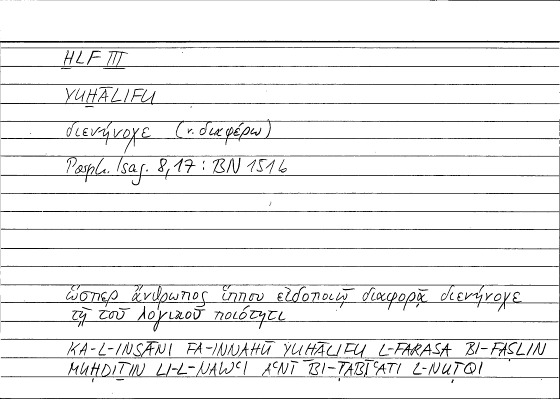 ḪLF III
YUḪĀLIFU
διενήνοχε (v. διαφέρω)
Porph. Isag. 8,17 : BN 151b
ὥσπερ ἄνθρωπος ἵππου εἰδοποιῷ διαφορᾷ διενήνοχε
τῇ τοῦ λογικοῦ ποιότητι
KA-L-INSĀNI FA-INNAHŪ YUḪĀLIFU L-FARASA BI-FAṢLIN
MUḤDIṮIN LI-L-NAWʿI AʿNĪ BI-ṬABĪʿATI L-NUṬQI